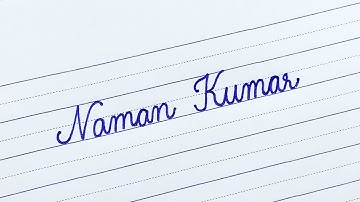 Naman Kumar